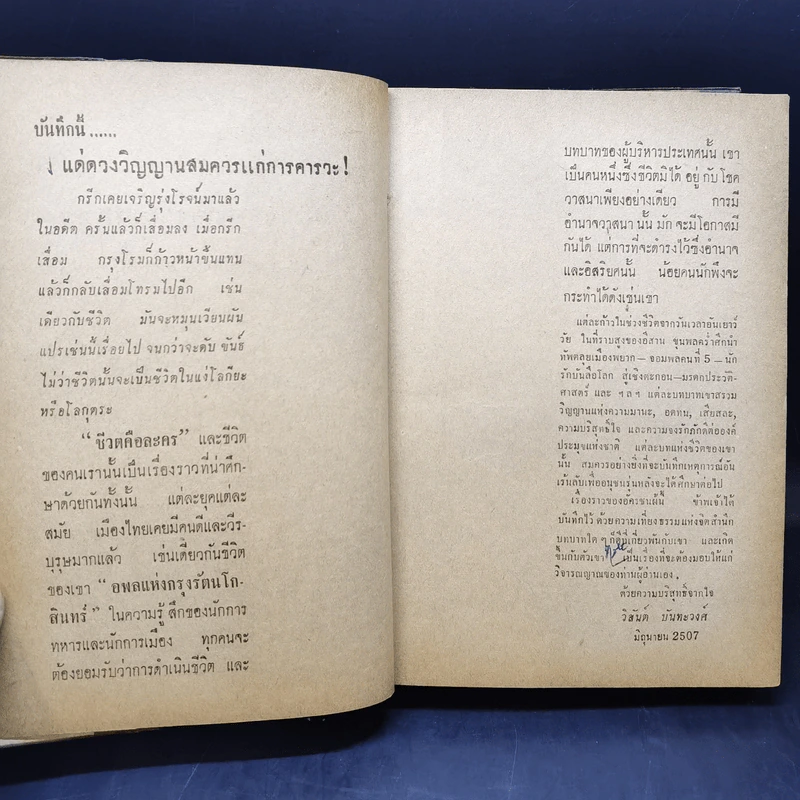 บันทึกนี้......
แด่ดวงวิญญานสมควรแก่การคารวะ!
กรีกเคยเจริญรุ่งโรจน์มาแล้ว
ในอดีต ครั้นแล้วก็เสื่อมลง เมื่อกรีก
เสื่อม กรุงโรมก็ก้าวหน้าขึ้นแทน
แล้วก็กลับเสื่อมโทรมไปอีก เช่น
เดียวกับชีวิต มันจะหมุนเวียนผัน
แปรเช่นนี้เรื่อยไป จนกว่าจะดับ ขันธ์
ไม่ว่าชีวิตนั้นจะเป็นชีวิตในแง่โลกียะ
หรือโลกุตระ
"ชีวิตคือละคร" และชีวิต
ของคนเรานั้นเป็นเรื่องราวที่น่าศึก-
ษาด้วยกันทั้งนั้น แต่ละยุคแต่ละ
สมัย เมืองไทยเคยมีคนดีและวีร-
บุรุษมากแล้ว เช่นเดียวกันชีวิต
ของเขา "อพลแห่งกรุงรัตนโก-
สินทร์" ในความรู้สึกของนักการ
ทหารและนักการเมือง ทุกคนจะ
ต้องยอมรับว่าการดำเนินชีวิต และ
บทบาทของผู้บริหารประเทศนั้น เขา
เป็นคนหนึ่งซึ่งชีวิตมิได้ อยู่ กับ โชค
วาสนาเพียงอย่างเดียว การมี
อำนาจวาสนา นั้น มัก จะมีโอกาสมี
กันได้ แต่การที่จะดำรงไว้ซึ่งอำนาจ
และอิสริยศนั้น น้อยคนนักพึงจะ
กระทำได้ดังเช่นเขา
แต่ละก้าวในช่วงชีวิตจากวันเวลาอันเยาว์
วัย ในที่ราบสูงของอีสาน ขุนพลคร่ำศึกนำ
ทัพตลุยเมืองพยาก - จอมพลคนที่ 5 - นัก
รักบันลือโลก สู่เชิงตะกอน - มรดกประวัติ-
ศาสตร์ และ ฯลฯ แต่ละบทบาทเขาสรวม
วิญญาณแห่งความมานะ, อดทน, เสียสละ,
ความบริสุทธิ์ใจ และความจงรักภักดีต่อองค์
ประมุขแห่งชาติ แต่ละบทแห่งชีวิตของเขา
นั้น สมควรอย่างยิ่งที่จะบันทึกเหตุการณ์อัน
เร้นลับเพื่ออนุชนรุ่นหลังจะได้ศึกษาต่อไป
เรื่องราวของอัครชนผู้นี้ ข้าพเจ้าได้
บันทึกไว้ ด้วยความเที่ยงธรรมแห่งจิตสำนึก
บทบาทใด ๆ ก็ดีที่เกี่ยวพันกับเขา และเกิด
ขึ้นกับตัวเขา เป็นเรื่องที่จะต้องมอบให้แก่
วิจารณญาณของท่านผู้อ่านเอง.
ด้วยความบริสุทธิ์จากใจ
วิสันต์ บันทะวงศ์
มิถุนายน 2507